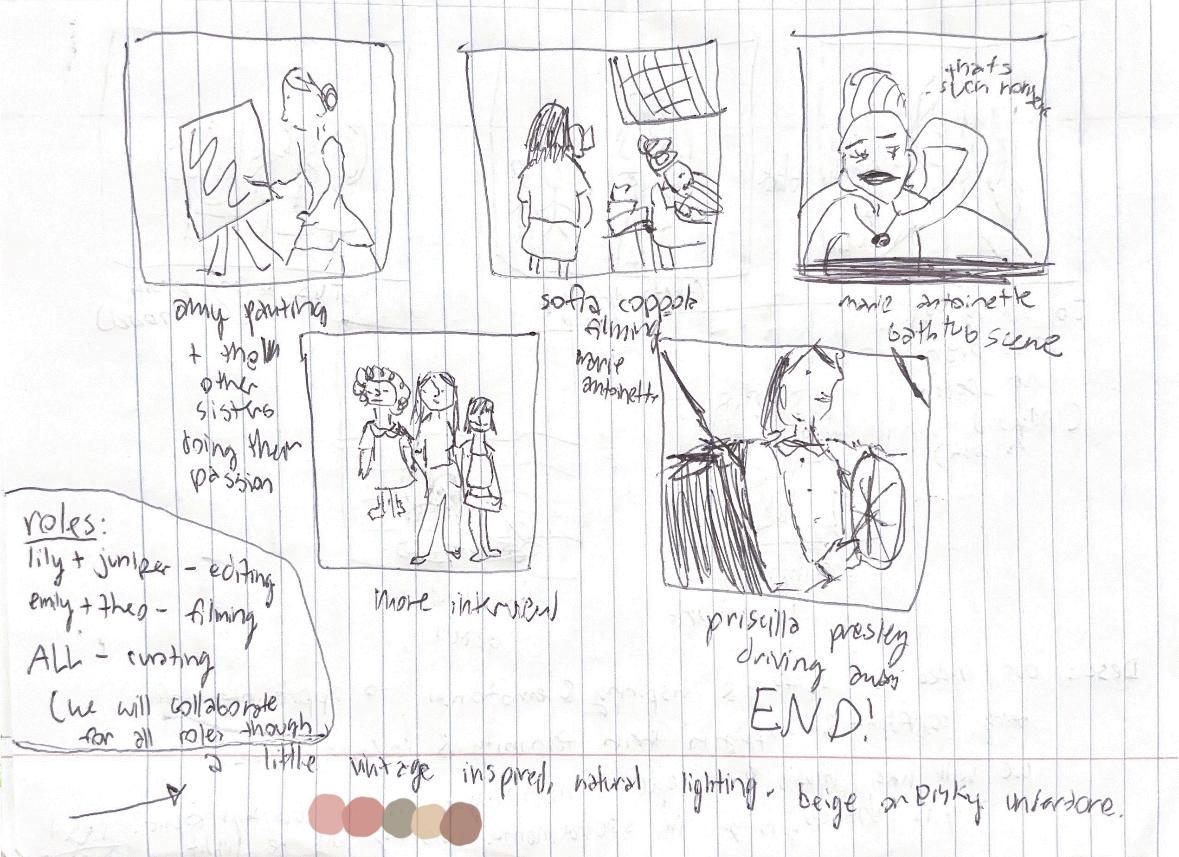 thats
such
amy painting
+ the
other
sisters
doing their
passion
sofia coppola
filming
marie
antoinette
marie antoinette
bathtub scene
more interview
priscilla presley
driving away
END!
roles:
lily + juniper - editing
emily + theo - filming
ALL - curating
(we will collaborate
for all roles though
a little vintage inspired, natural lighting. beige or pinky